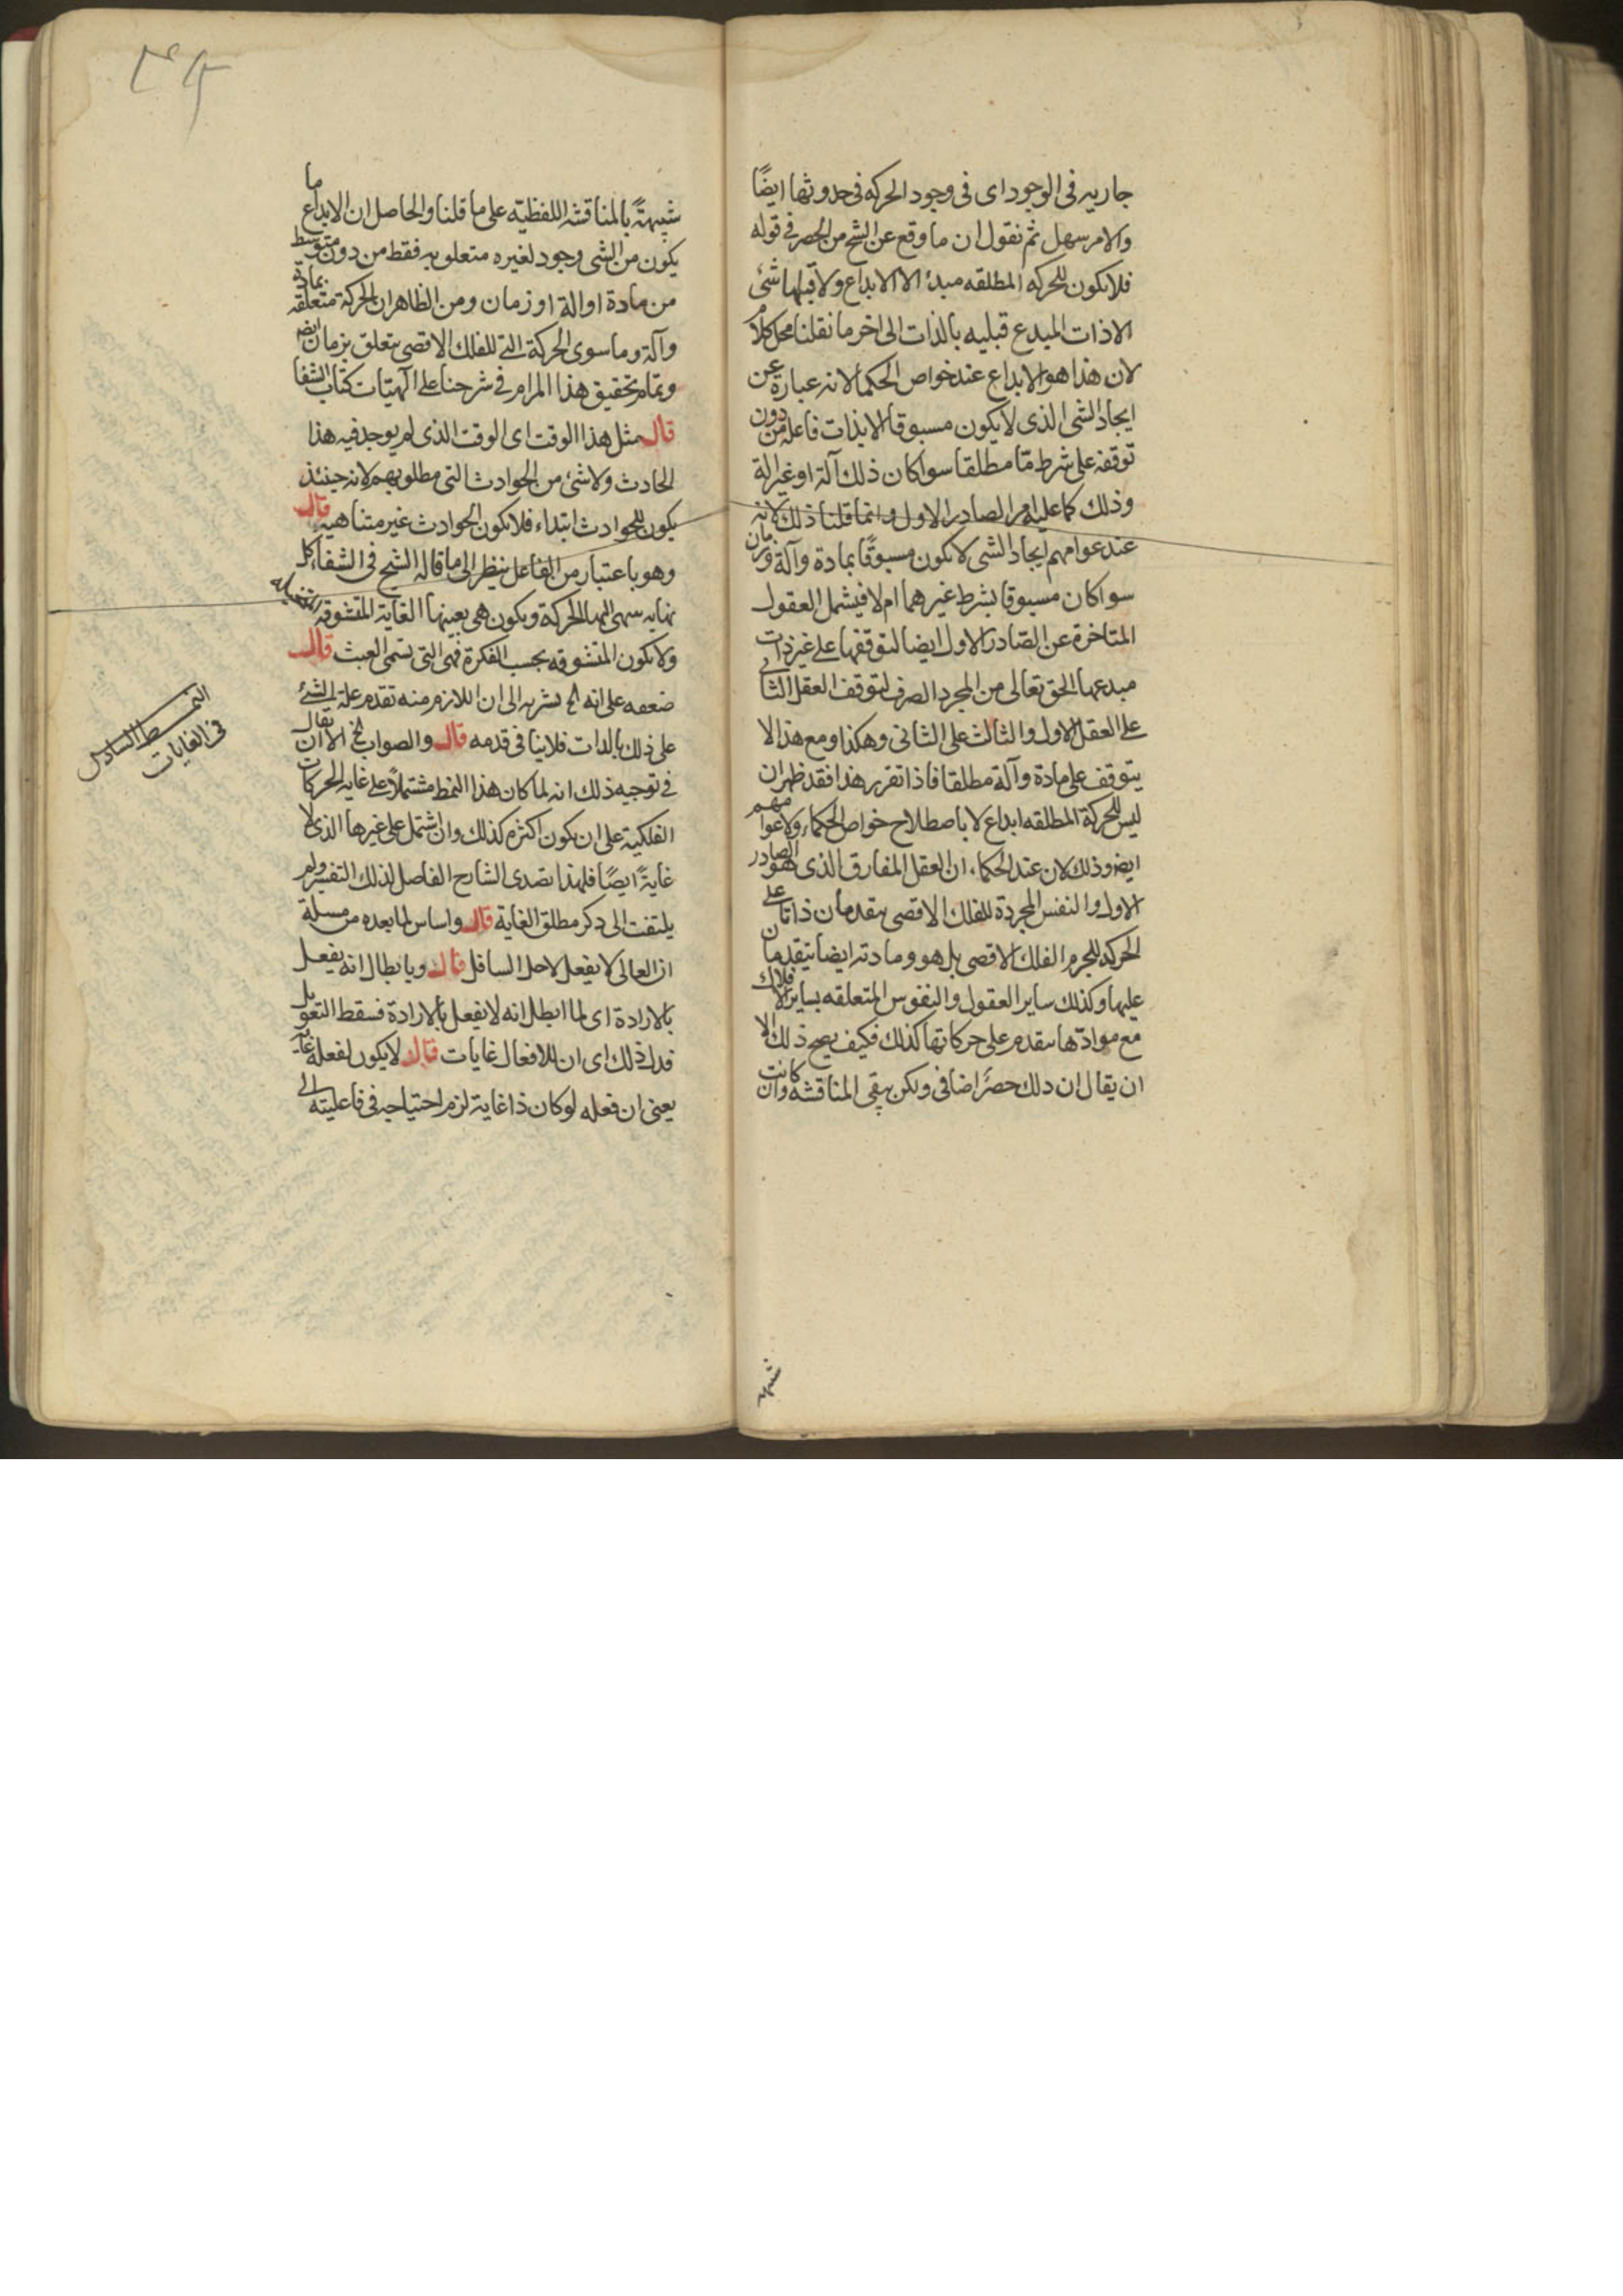 جاريه فى الوجود اى فى وجود الحركه فى حدوثها ايضًا
والامر سهل ثم نقول ان ما وقع عن الشيخ من الحصر فى قوله
فلا يكون للحركه المطلقه مبدئ الا الابداع ولا قبلها شئ
الا ذات المبدع قبليه بالذات الى اخر ما نقلنا محل كلام
لان هذا هو الابداع عند خواص الحكما لانه عبارة عن
ايجاد الشى الذى لا يكون مسبوقا الا بذات فاعله من دون
توقفه على شرط مّا مطلقا سوا كان ذلك آلة او غير الة
وذلك كما عليه امر الصادر الاول وانما قلنا ذلك لانه
عند عوامهم ايجاد الشى لا يكون مسبوقًا بمادة وآلة وزمان
سوا كان مسبوقا بشرط غيرهما ام لا فيشمل العقول
المتاخرة عن الصادر الاول ايضا لتوقفها على غير ذات
مبدعها الحق تعالى من المجرد الصرف لتوقف العقل الثانى
على العقل الاول والثالث على الثانى وهكذا ومع هذا لا
يتوقف على مادة وآلة مطلقا فاذا تقرر هذا فقد ظهر ان
ليس للحركة المطلقه ابداع لا باصطلاح خواص الحكماء ولا عوامهم
ايضا وذلك لان عند الحكماء ان العقل المفارق الذى هو الصادر
الاول والنفس المجردة للفلك الاقصى يتقدمان ذاتا على
الحركه للجرم الفلك الاقصى بل هو ومادته ايضا يتقدمان
عليها وكذلك ساير العقول والنفوس المتعلقه بساير الافلاك
مع موادّها يتقدم على حركاتها كذلك فكيف يصح ذلك الا
ان يقال ان ذلك حصرً اضافى ولكن يبقى المناقشه وان كانت
شبيهة
شبيهةً بالمناقشه اللفظيّه على ما قلنا والحاصل ان الابداع ما
يكون من الشى وجود لغيره متعلو به فقط من دون متوسط
من مادة او الة او زمان ومن الظاهر ان الحركة متعلقه بمادة
وآلة وما سوى الحركة التى للفلك الاقصى يتعلق بزمان ايضا
وتمام تحقيق هذا المرام فى شرحنا على الهيّات كتاب الشفا
قال مثل هذا الوقت اى الوقت الذى لم يوجد فيه هذا
الحادث ولا شئ من الحوادث التى مطلوبهم لانه حينئذ
يكون للحوادث ابتداء فلا يكون الحوادث غير متناهيه قال
وهو باعتبار من الفاعل ينظر الى ما قاله الشيخ فى الشفاء كل
نهايه ينتهى اليها الحركة ويكون هى بعينها الغاية المتشوقه
ولا يكون المتشوقه بحسب الفكرة فهى التى تسمى العبث قال
ضعفه على انه يشير به الى ان اللازم منه تقدم علة الشئ
على ذلك بالذات فلا ينافى قدمه قال والصواب الخ الا ان يقال
فى توجيه ذلك انه لما كان هذا النمط مشتملاً على غايه الحركات
الفلكية على ان يكون اكثره كذلك وان اشتمل على غيرها الذى لا
غايةً ايضًا فلهذا تصدى الشارح الفاصل لذلك التفسير ولم
يلتفت الى ذكر مطلق الغاية قال واساس لما بعده من مسئلة
ان العالى لا يفعل لاجل السافل قال وبابطال انه يفعل
بالارادة اى لما ابطل انه لا يفعل بالارادة فسقط التعويل
فدل ذلك اى ان للافعال غايات قال لا يكون لفعله غاية
يعنى ان فعله لو كان ذا غاية لزم احتياجه فى فاعليته الى
النمط السادس
فى الغايات